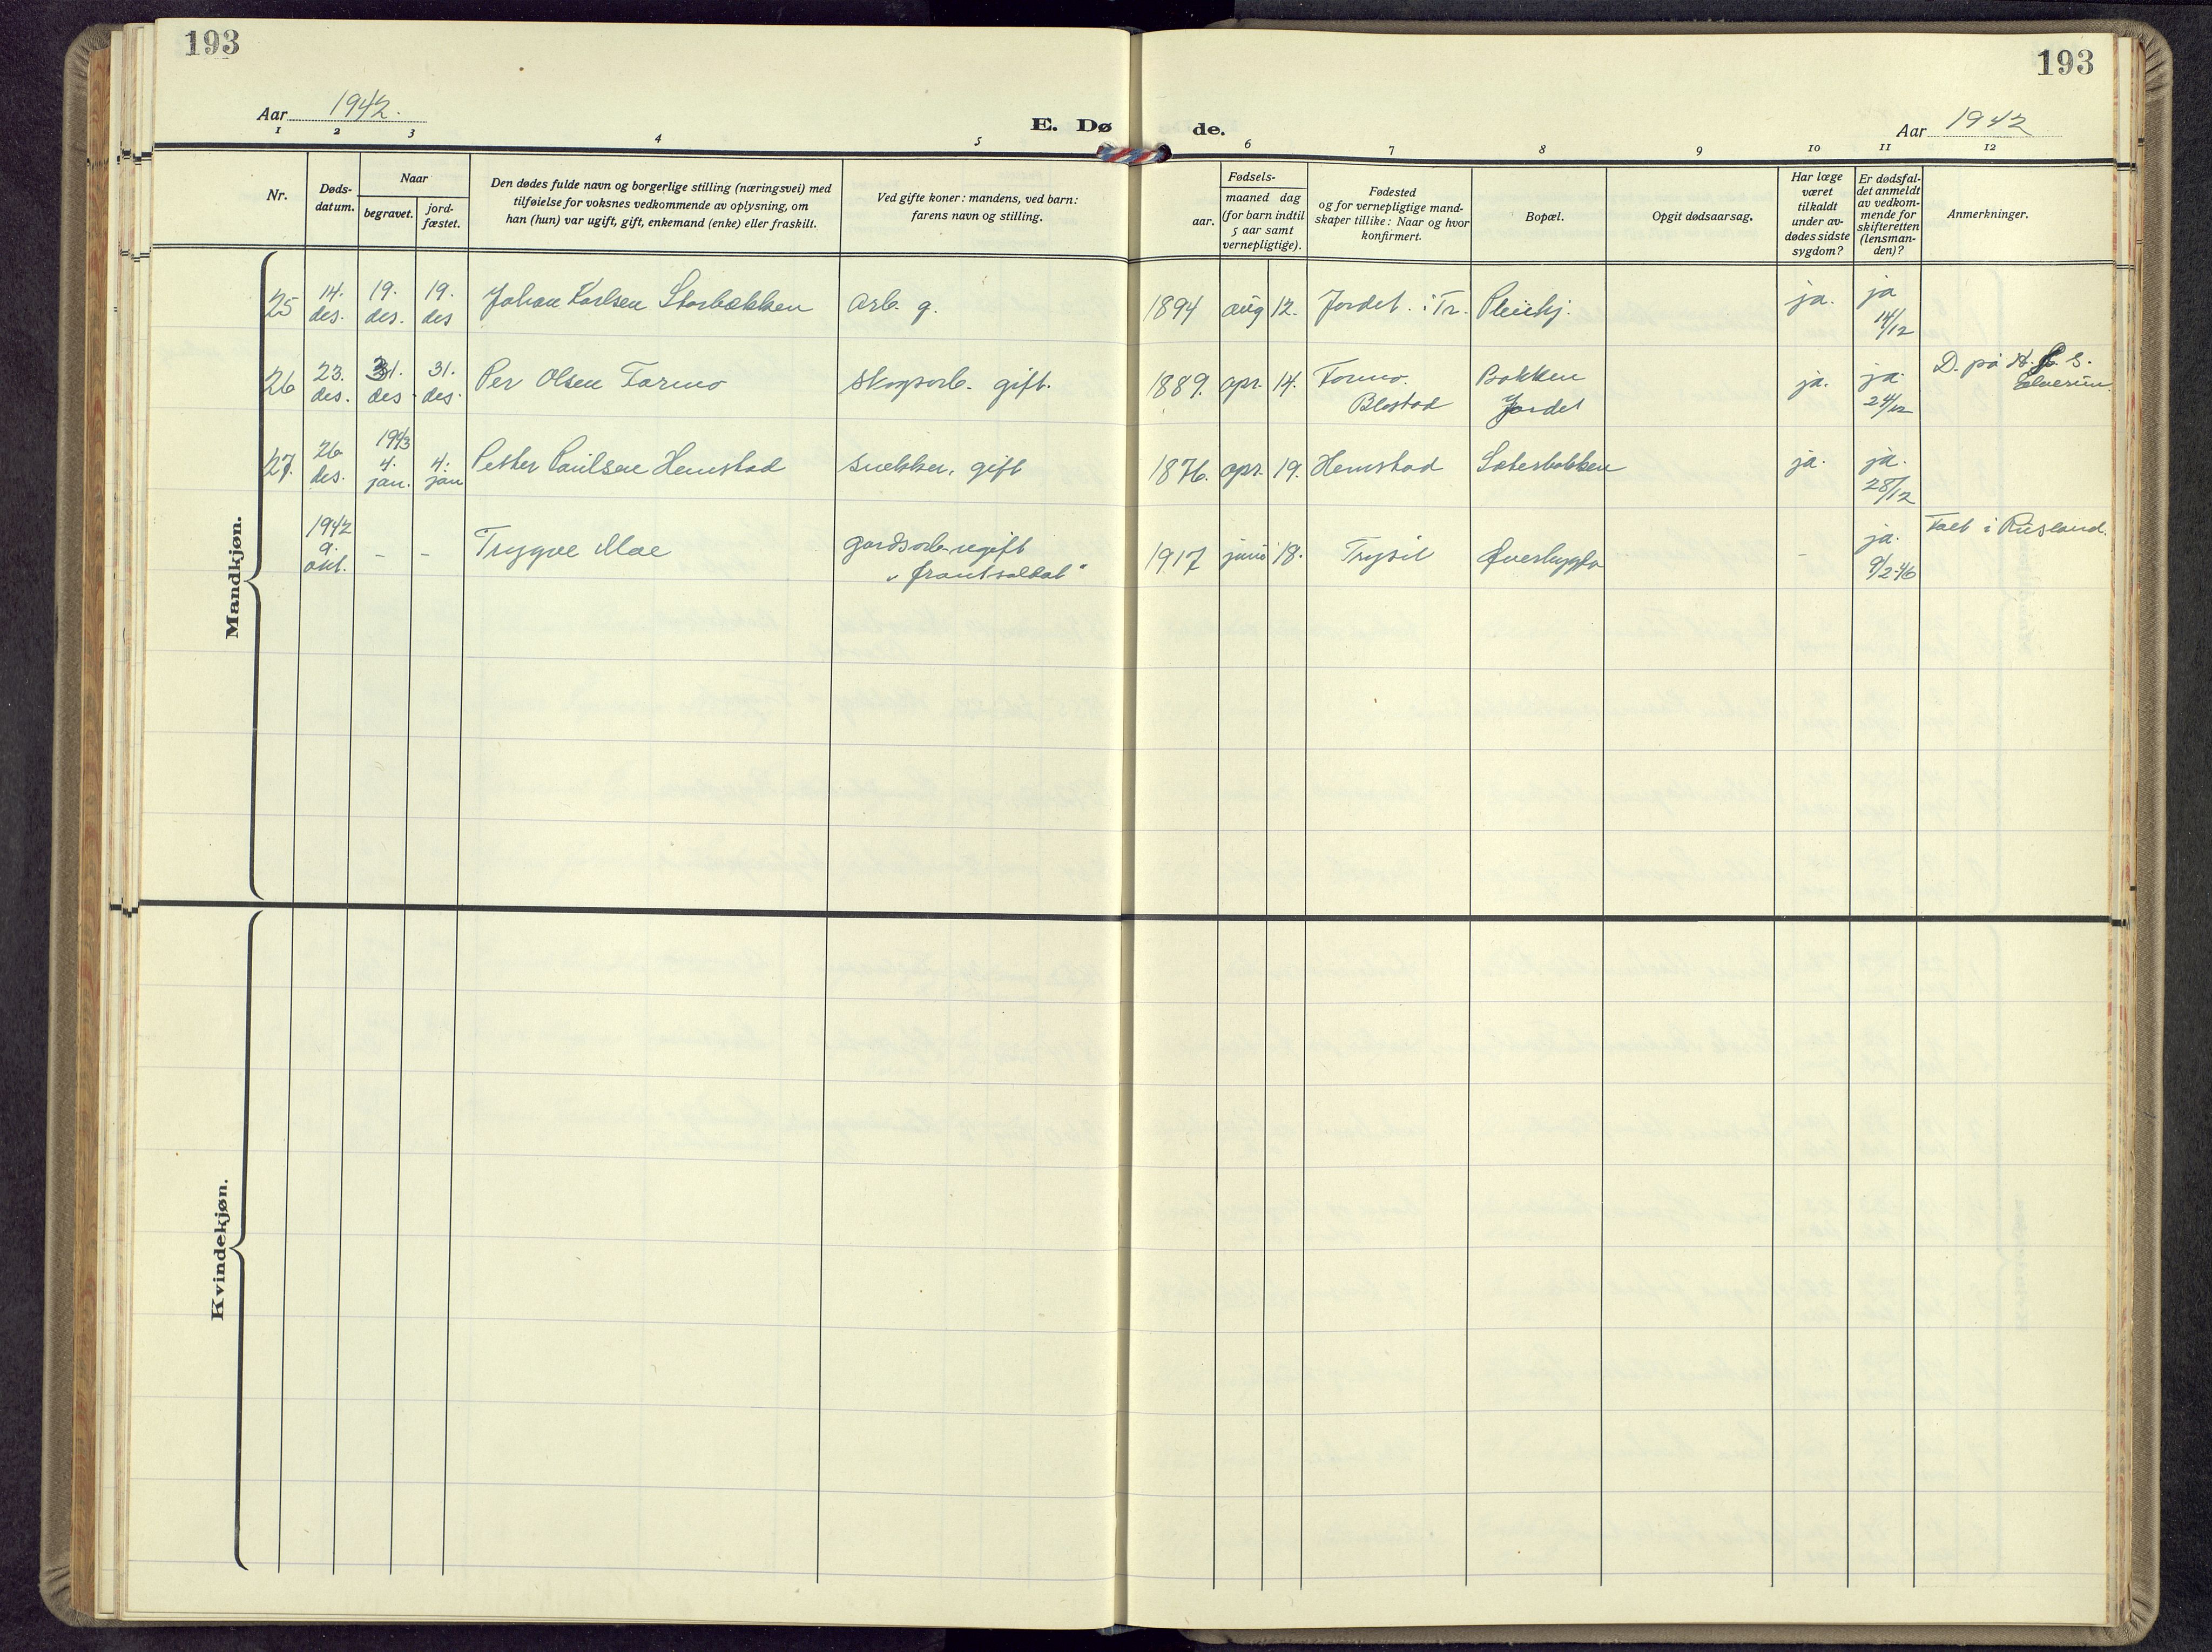 193
193
Aar 1942.
E. Døde.
Aar 1942
1 2 3 4 5 6 7 8 9 10 11 12
Nr.
Døds-
datum.
Naar
begravet.
jord-
fæstet.
Den dødes fulde navn og borgerlige stilling (næringsvei) med
tilføielse for voksnes vedkommende av oplysning, om
han (hun) var ugift, gift, enkemand (enke) eller fraskilt.
Ved gifte koner: mandens, ved barn:
farens navn og stilling.
Fødsels-
aar.
maaned dag
(for barn indtil
5 aar samt
vernepligtige).
Fødested
og for vernepligtige mand-
skaper tillike: Naar og hvor
konfirmert.
Bopæl.
Opgit dødsaarsag.
Har læge
været
tilkaldt
under av-
dødes sidste
sygdom?
Er dødsfal-
det anmeldt
av vedkom-
mende for
skifteretten
(lensman-
den)?
Anmerkninger.
Mandkjøn.
25 14. des. 19. des. 19. des Johan Karlsen Storbækken arb. g. 1894 aug 12. Jordet. i Tr. Pleiehj. ja. ja 14/12
26 23. des. 31. des. 31. des. Per Olsen Formo skogsarb. gift. 1889. apr. 14. Formo. Blostad Bakken Jordet ja. ja 24/12 D. på S. Elverum.
27. 26 des. 1943 4. jan. 4. jan Petter Paulsen Hemstad snekker, gift 1876. apr. 19. Hemstad Sæterbakken ja. ja. 28/12
1942 9. okt. - - Trygve Moe gardsarb. ugift "frontsoldat" 1917 juni 18. Trysil Øverbygda - ja. 9/2-46 Falt i Russland.
Kvindekjøn.